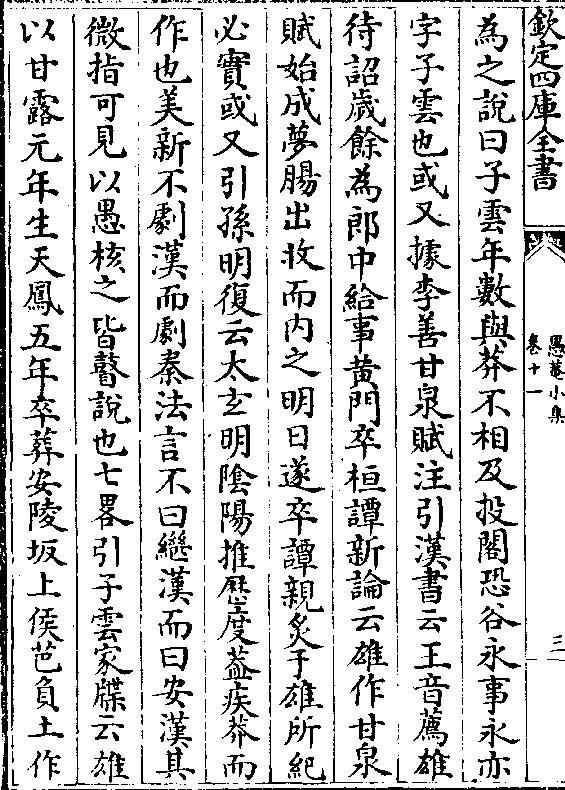 欽定四庫全書
愚菴小集
卷十一
三
為之說曰子雲年數與莽不相及投閣恐谷永事永亦
字子雲也或又據李善甘泉賦注引漢書云王音薦雄
待詔歲餘為郎中給事黄門卒桓譚新論云雄作甘泉
賦始成夢腸出收而内之明日遂卒譚親炙于雄所紀
必實或又引孫明復云太玄明陰陽推厯度葢疾莽而
作也美新不劇漢而劇秦法言不曰繼漢而曰安漢其
微指可見以愚核之皆瞽說也七畧引子雲家牒云雄
以甘露元年生天鳳五年卒葬安陵坂上侯芭負土作